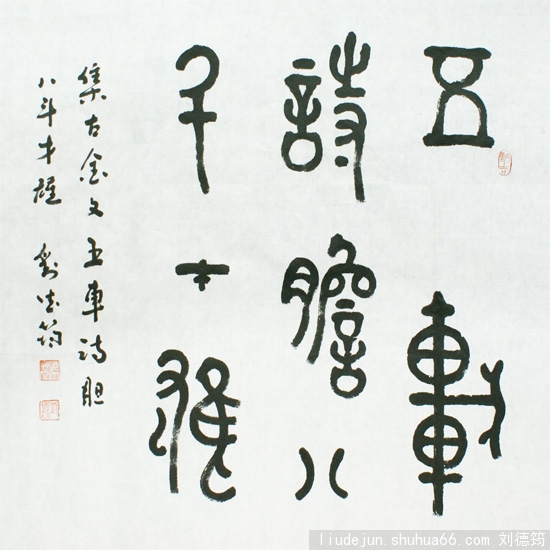 五車
詩膽八
斗才雄
集古金文五車诗胆
八斗才雄 劉德筠
liudejun.shuhua66.com 刘德筠